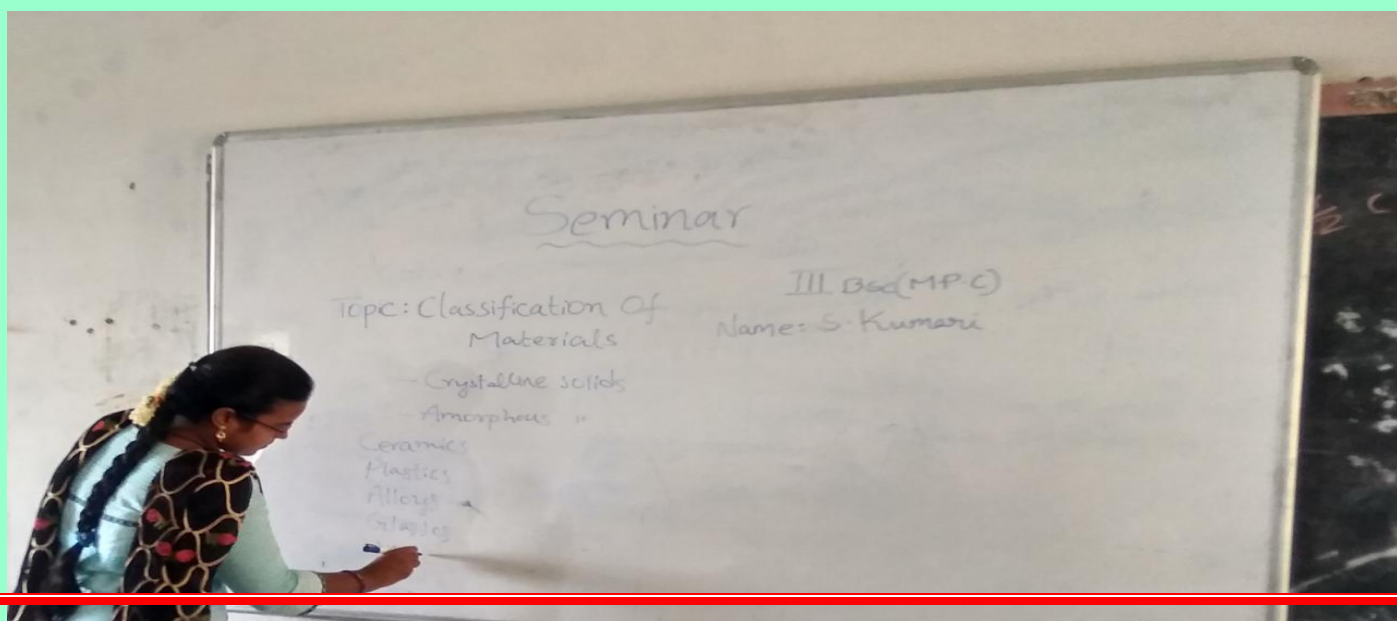 Seminar
Topic: Classification Of
Materials
III BSc(M.P.C)
Name: S. Kumari
- Crystalline solids
- Amorphous "
Ceramics
Plastics
Alloys
Glasses